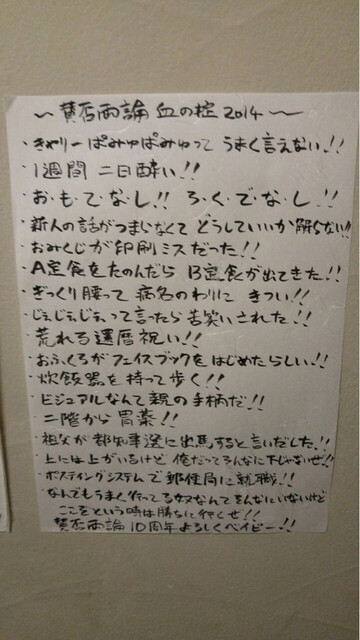 ～賛否両論 血の掟 2014～
・きゃりーぱみゅぱみゅって うまく言えない!!
・1週間 二日酔い!!
・お・も・て・な・し!! ろ・く・で・な・し!!
・新人の話がつまらなくて どうしていいか解らない!!
・おみくじが印刷ミスだった!!
・A定食をたのんだら B定食が出てきた!!
・ぎっくり腰って 病名のわりに きつい!!
・じぇじぇじぇって言ったら苦笑いされた!!
・荒れる還暦祝い!!
・おふくろがフェイスブックをはじめたらしい!!
・炊飯器を持って歩く!!
・ビジュアルなんて親の手柄だ!!
・二階から胃薬!!
・祖父が都知事選に出馬すると言いだした!!
・上には上がいるけど 俺だってそんなに下じゃないぜ!!
・ポスティングシステムで郵便局に就職!!
・なんでもうまく行ってる奴なんてそんなにいないけど
ここぞという時は勝ちに行くぜ!!
賛否両論10周年よろしくベイビー!!